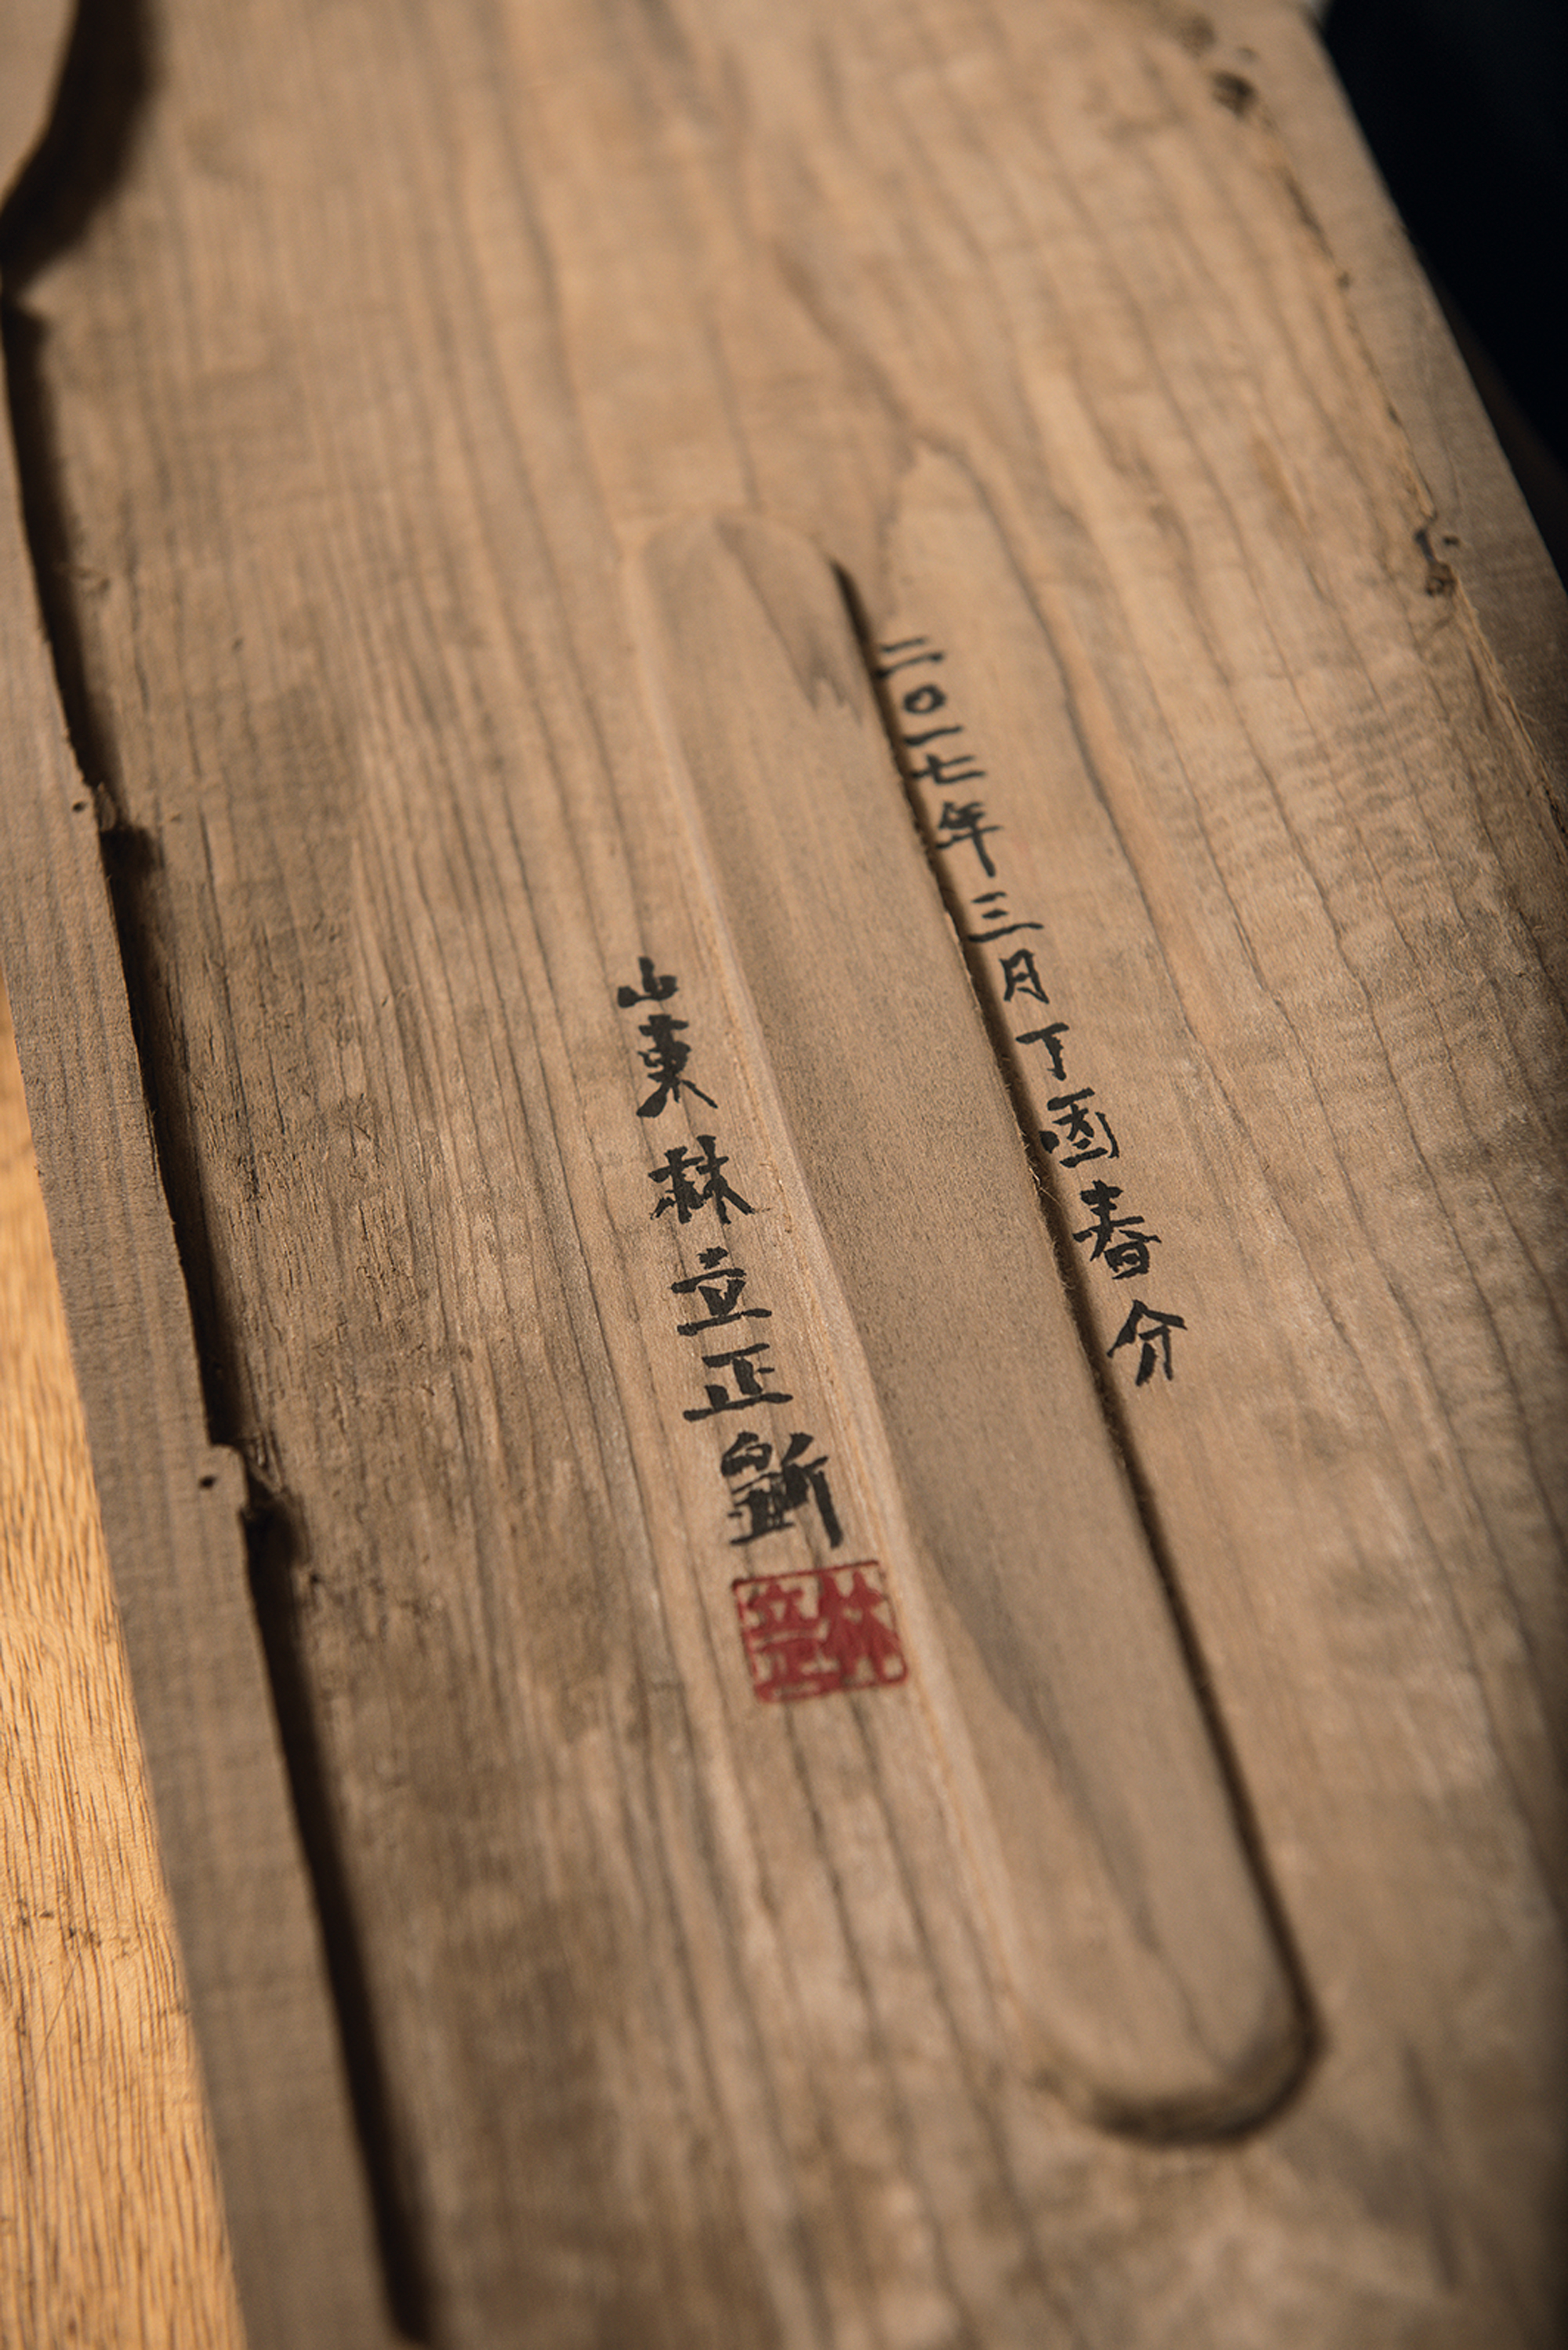 二〇一七年三月丁酉春分
山東 林立正斵
林立正